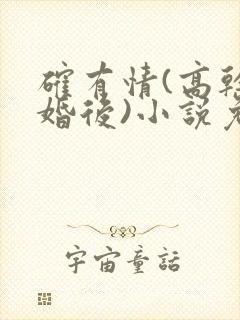 確有情(高幹
婚後)小說免
宇宙童話